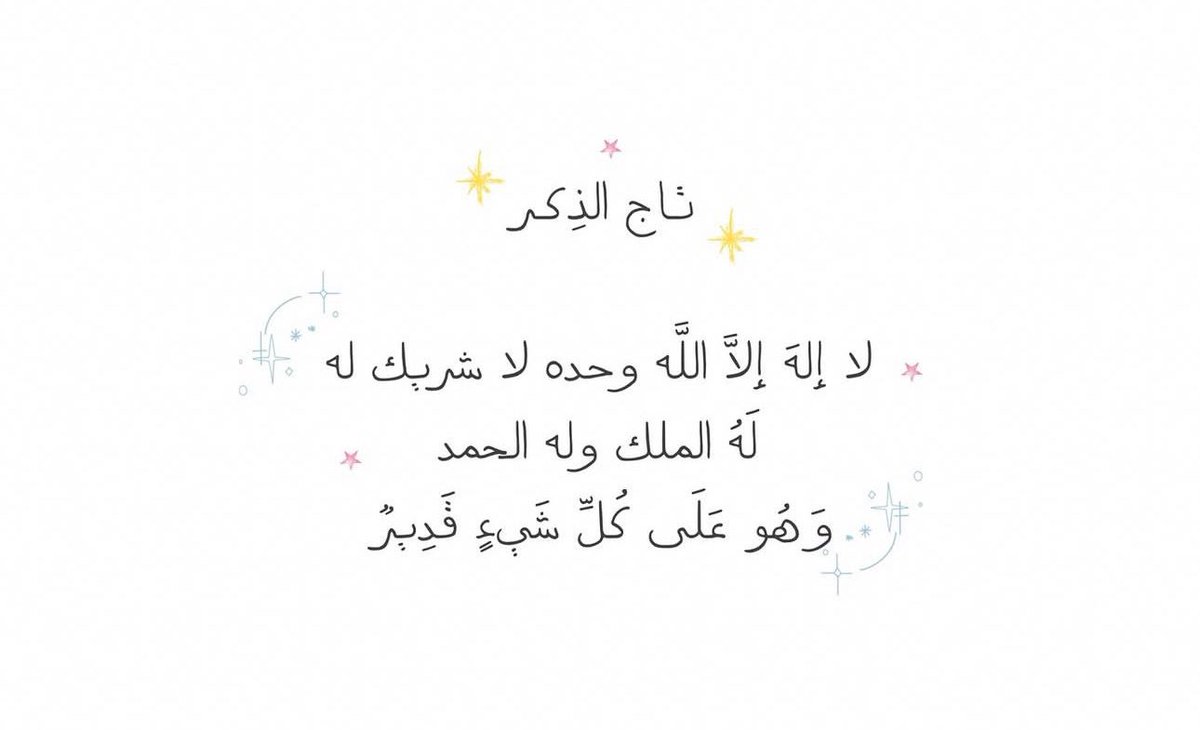 تاج الذِكر
لا إلهَ إلاَّ اللَّه وحده لا شريك له
لَهُ الملك وله الحمد
وَهُو عَلَى كُلِّ شَيءٍ قَدِيرٌ